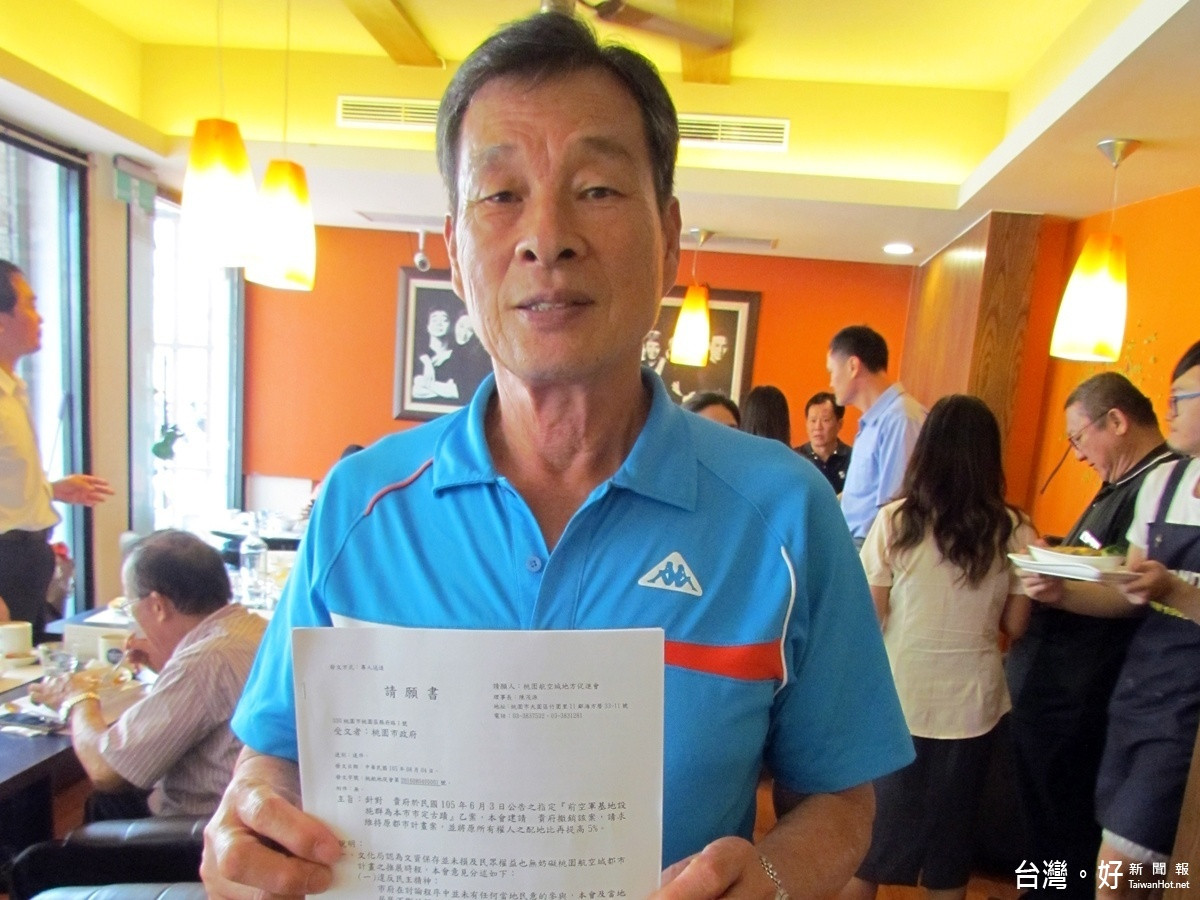 發文方式：專人遞送
請願書
請願人：桃園航空城地方促進會
理事長：陳茂雄
受文者：桃園市政府
速別：速件。
附件：無。
主旨：針對　貴府於民國105年6月3日公告之指定「前空軍基地設
施群為本市市定古蹟」乙案，本會建請　貴府撤銷該案，請求
維持原都市計畫案，並將原所有權人之配地比再提高5%。
說明：
一、文化局認為文資保存並未損及民眾權益也無妨礙桃園航空城都市
計畫之推展時程，本會意見分述如下：
(一)違反民主精神：
市府在討論程序中並未有任何當地民意的參與，本會及當地
台灣。好 新聞報
TaiwanHot.net